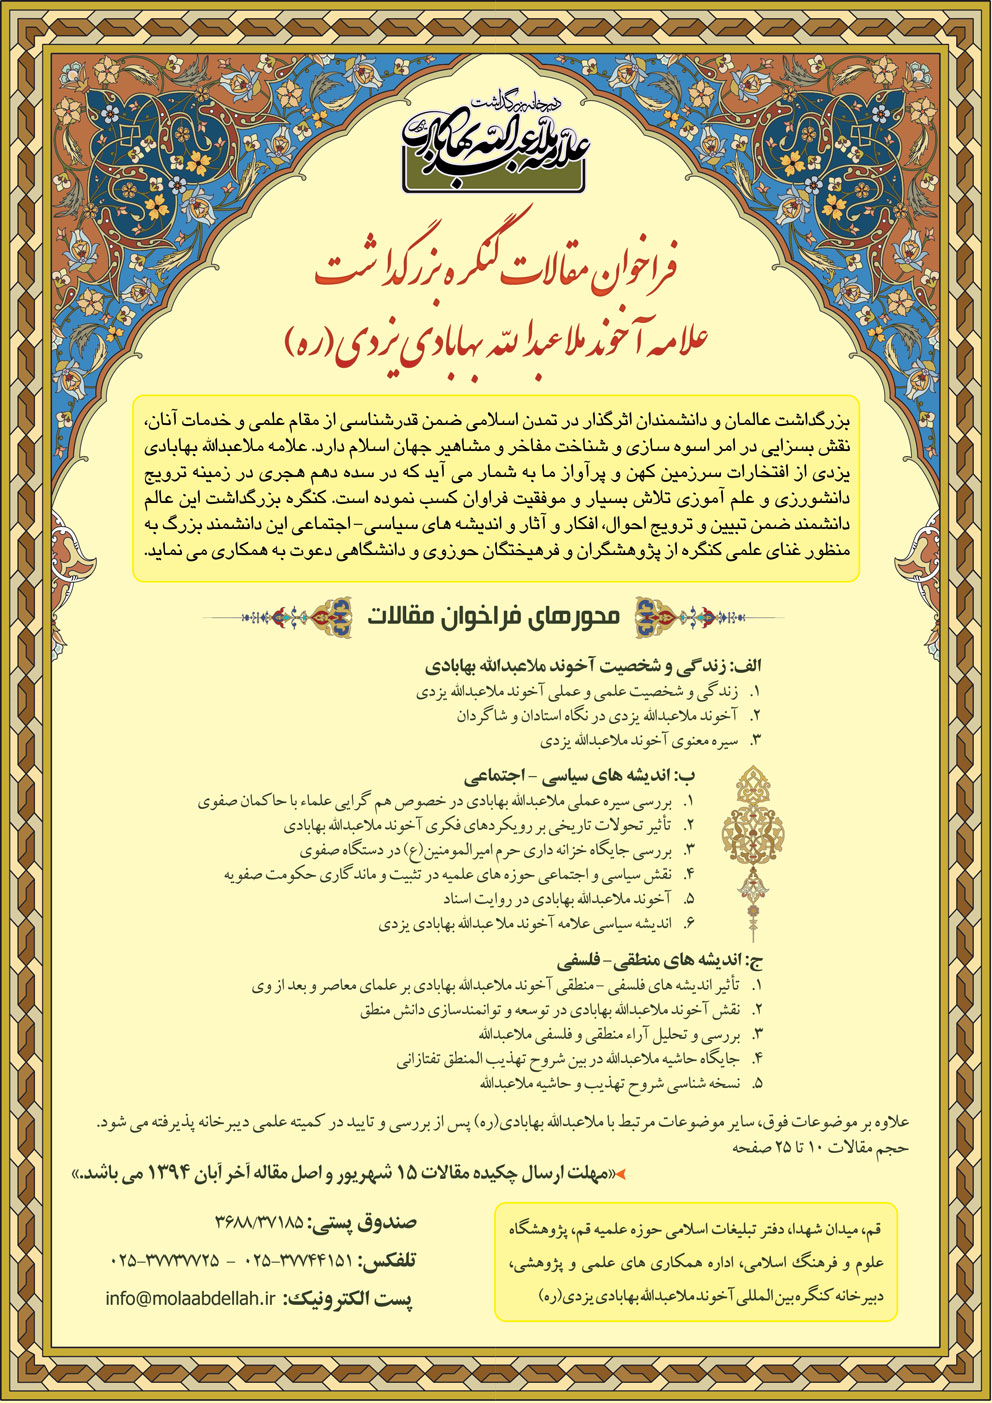 دبیرخانه بزرگداشت
علامه ملاعبدالله بهابادی
فراخوان مقالات کنگره بزرگداشت
علامه آخوند ملاعبدالله بهابادی یزدی (ره)
بزرگداشت عالمان و دانشمندان اثرگذار در تمدن اسلامی ضمن قدرشناسی از مقام علمی و خدمات آنان،
نقش بسزایی در امر اسوه سازی و شناخت مفاخر و مشاهیر جهان اسلام دارد. علامه ملاعبدالله بهابادی
یزدی از افتخارات سرزمین کهن و پرآواز ما به شمار می آید که در سده دهم هجری در زمینه ترویج
دانشورزی و علم آموزی تلاش بسیار و موفقیت فراوان کسب نموده است. کنگره بزرگداشت این عالم
دانشمند ضمن تبیین و ترویج احوال، افکار و آثار و اندیشه های سیاسی- اجتماعی این دانشمند بزرگ به
منظور غنای علمی کنگره از پژوهشگران و فرهیختگان حوزوی و دانشگاهی دعوت به همکاری می نماید.
محورهای فراخوان مقالات
الف: زندگی و شخصیت آخوند ملاعبدالله بهابادی
۱. زندگی و شخصیت علمی و عملی آخوند ملاعبدالله یزدی
۲. آخوند ملاعبدالله یزدی در نگاه استادان و شاگردان
۳. سیره معنوی آخوند ملاعبدالله یزدی
ب: اندیشه های سیاسی - اجتماعی
۱. بررسی سیره عملی ملاعبدالله بهابادی در خصوص هم گرایی علماء با حاکمان صفوی
۲. تأثیر تحولات تاریخی بر رویکردهای فکری آخوند ملاعبدالله بهابادی
۳. بررسی جایگاه خزانه داری حرم امیرالمومنین(ع) در دستگاه صفوی
۴. نقش سیاسی و اجتماعی حوزه های علمیه در تثبیت و ماندگاری حکومت صفویه
۵. آخوند ملاعبدالله بهابادی در روایت اسناد
۶. اندیشه سیاسی علامه آخوند ملاعبدالله بهابادی یزدی
ج: اندیشه های منطقی- فلسفی
۱. تأثیر اندیشه های فلسفی - منطقی آخوند ملاعبدالله بهابادی بر علمای معاصر و بعد از وی
۲. نقش آخوند ملاعبدالله بهابادی در توسعه و توانمندسازی دانش منطق
۳. بررسی و تحلیل آراء منطقی و فلسفی ملاعبدالله
۴. جایگاه حاشیه ملاعبدالله در بین شروح تهذیب المنطق تفتازانی
۵. نسخه شناسی شروح تهذیب و حاشیه ملاعبدالله
علاوه بر موضوعات فوق، سایر موضوعات مرتبط با ملاعبدالله بهابادی(ره) پس از بررسی و تایید در کمیته علمی دیبرخانه پذیرفته می شود.
حجم مقالات ۱۰ تا ۲۵ صفحه
«مهلت ارسال چکیده مقالات ۱۵ شهریور و اصل مقاله آخر آبان ۱۳۹۴ می باشد.»
قم، میدان شهدا، دفتر تبلیغات اسلامی حوزه علمیه قم، پژوهشگاه
علوم و فرهنگ اسلامی، اداره همکاری های علمی و پژوهشی،
دبیرخانه کنگره بین المللی آخوند ملاعبدالله بهابادی یزدی(ره)
صندوق پستی: ۳۶۸۸/۳۷۱۸۵
تلفکس: ۳۷۷۴۴۱۵۱-۰۲۵ - ۳۷۷۳۷۷۲۵-۰۲۵
پست الکترونیک: info@molaabdellah.ir